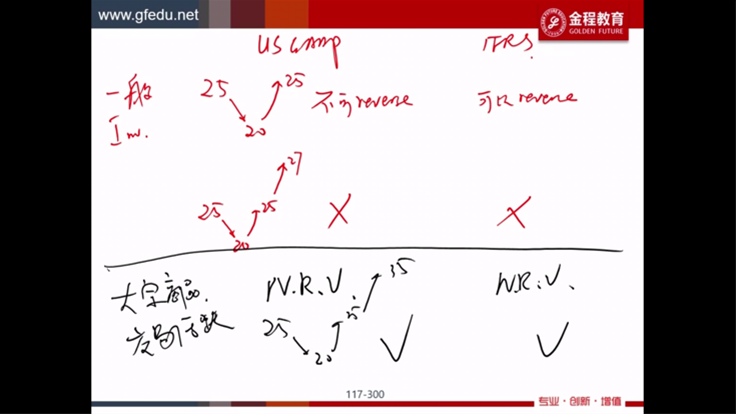 www.gfedu.net
金程教育
GOLDEN FUTURE
US GAAP IFRS
一般 25 20 25 不可reverse 可以reverse
Inv.
25 20 25 27 X X
大宗商品 N.R.V N.R.V.
25 20 25 35 √ √
117-300
专业·创新·增值